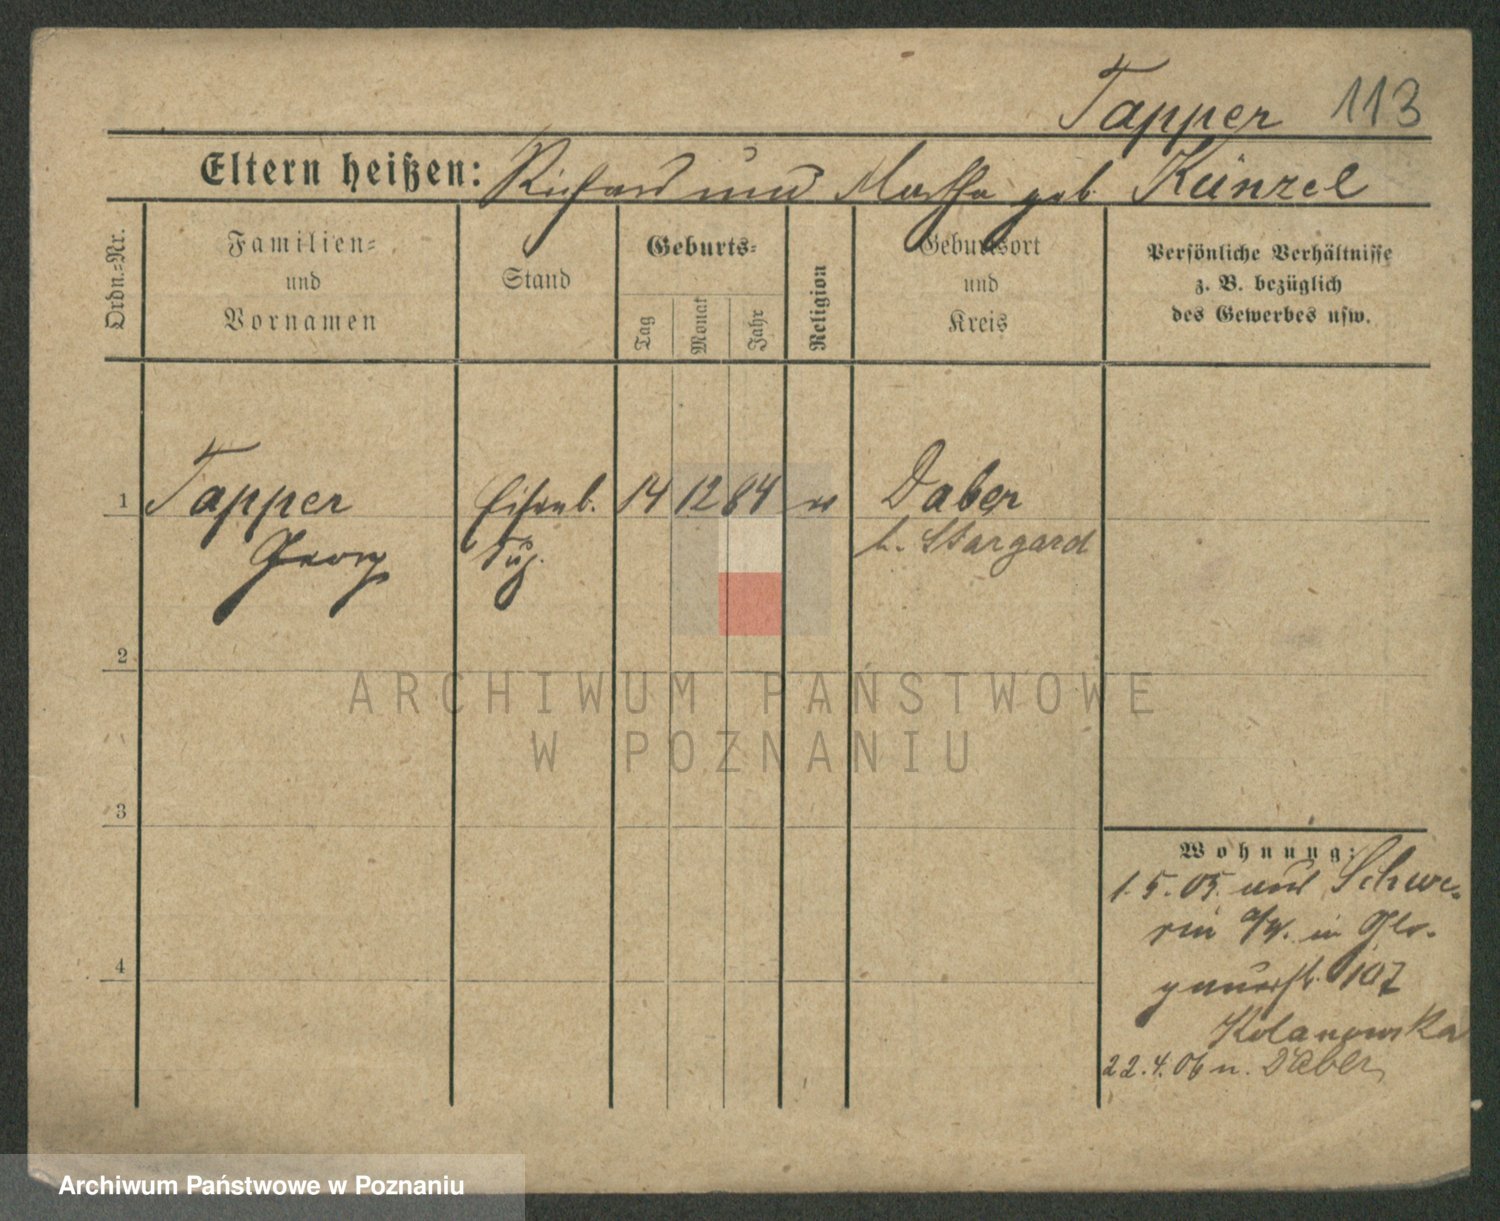 Tapper 113
Eltern heißen: Richard und Martha geb. Künzel
Ordn.=Nr.
Familien=
und
Vornamen
Stand
Geburts=
Tag
Monat
Jahr
Religion
Geburtsort
und
Kreis
Persönliche Verhältnisse
z. B. bezüglich
des Gewerbes usw.
1 Tapper Eisenb. 14 12 84 Daber
Georg b. Stargard
2
3
4
ARCHIWUM PAŃSTWOWE
W POZNANIU
Wohnung:
1.5.05. aus Schwe-
rin a/W. in Glo-
gauerst. 107
Kolanowska
22.4.06 n. Daber
Archiwum Państwowe w Poznaniu